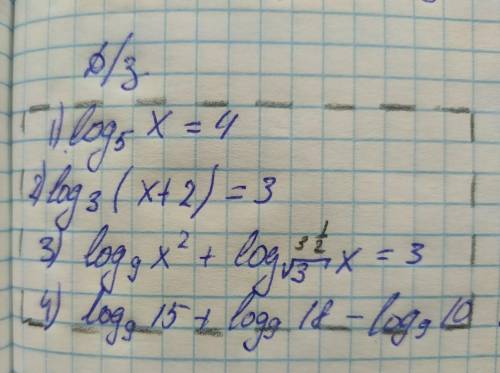 Д/з
1) log₅ x = 4
2) log₃ (x+2) = 3
3) log₉ x² + log_√3 x = 3
3^½
4) log₉ 15 + log₉ 18 - log₉ 10